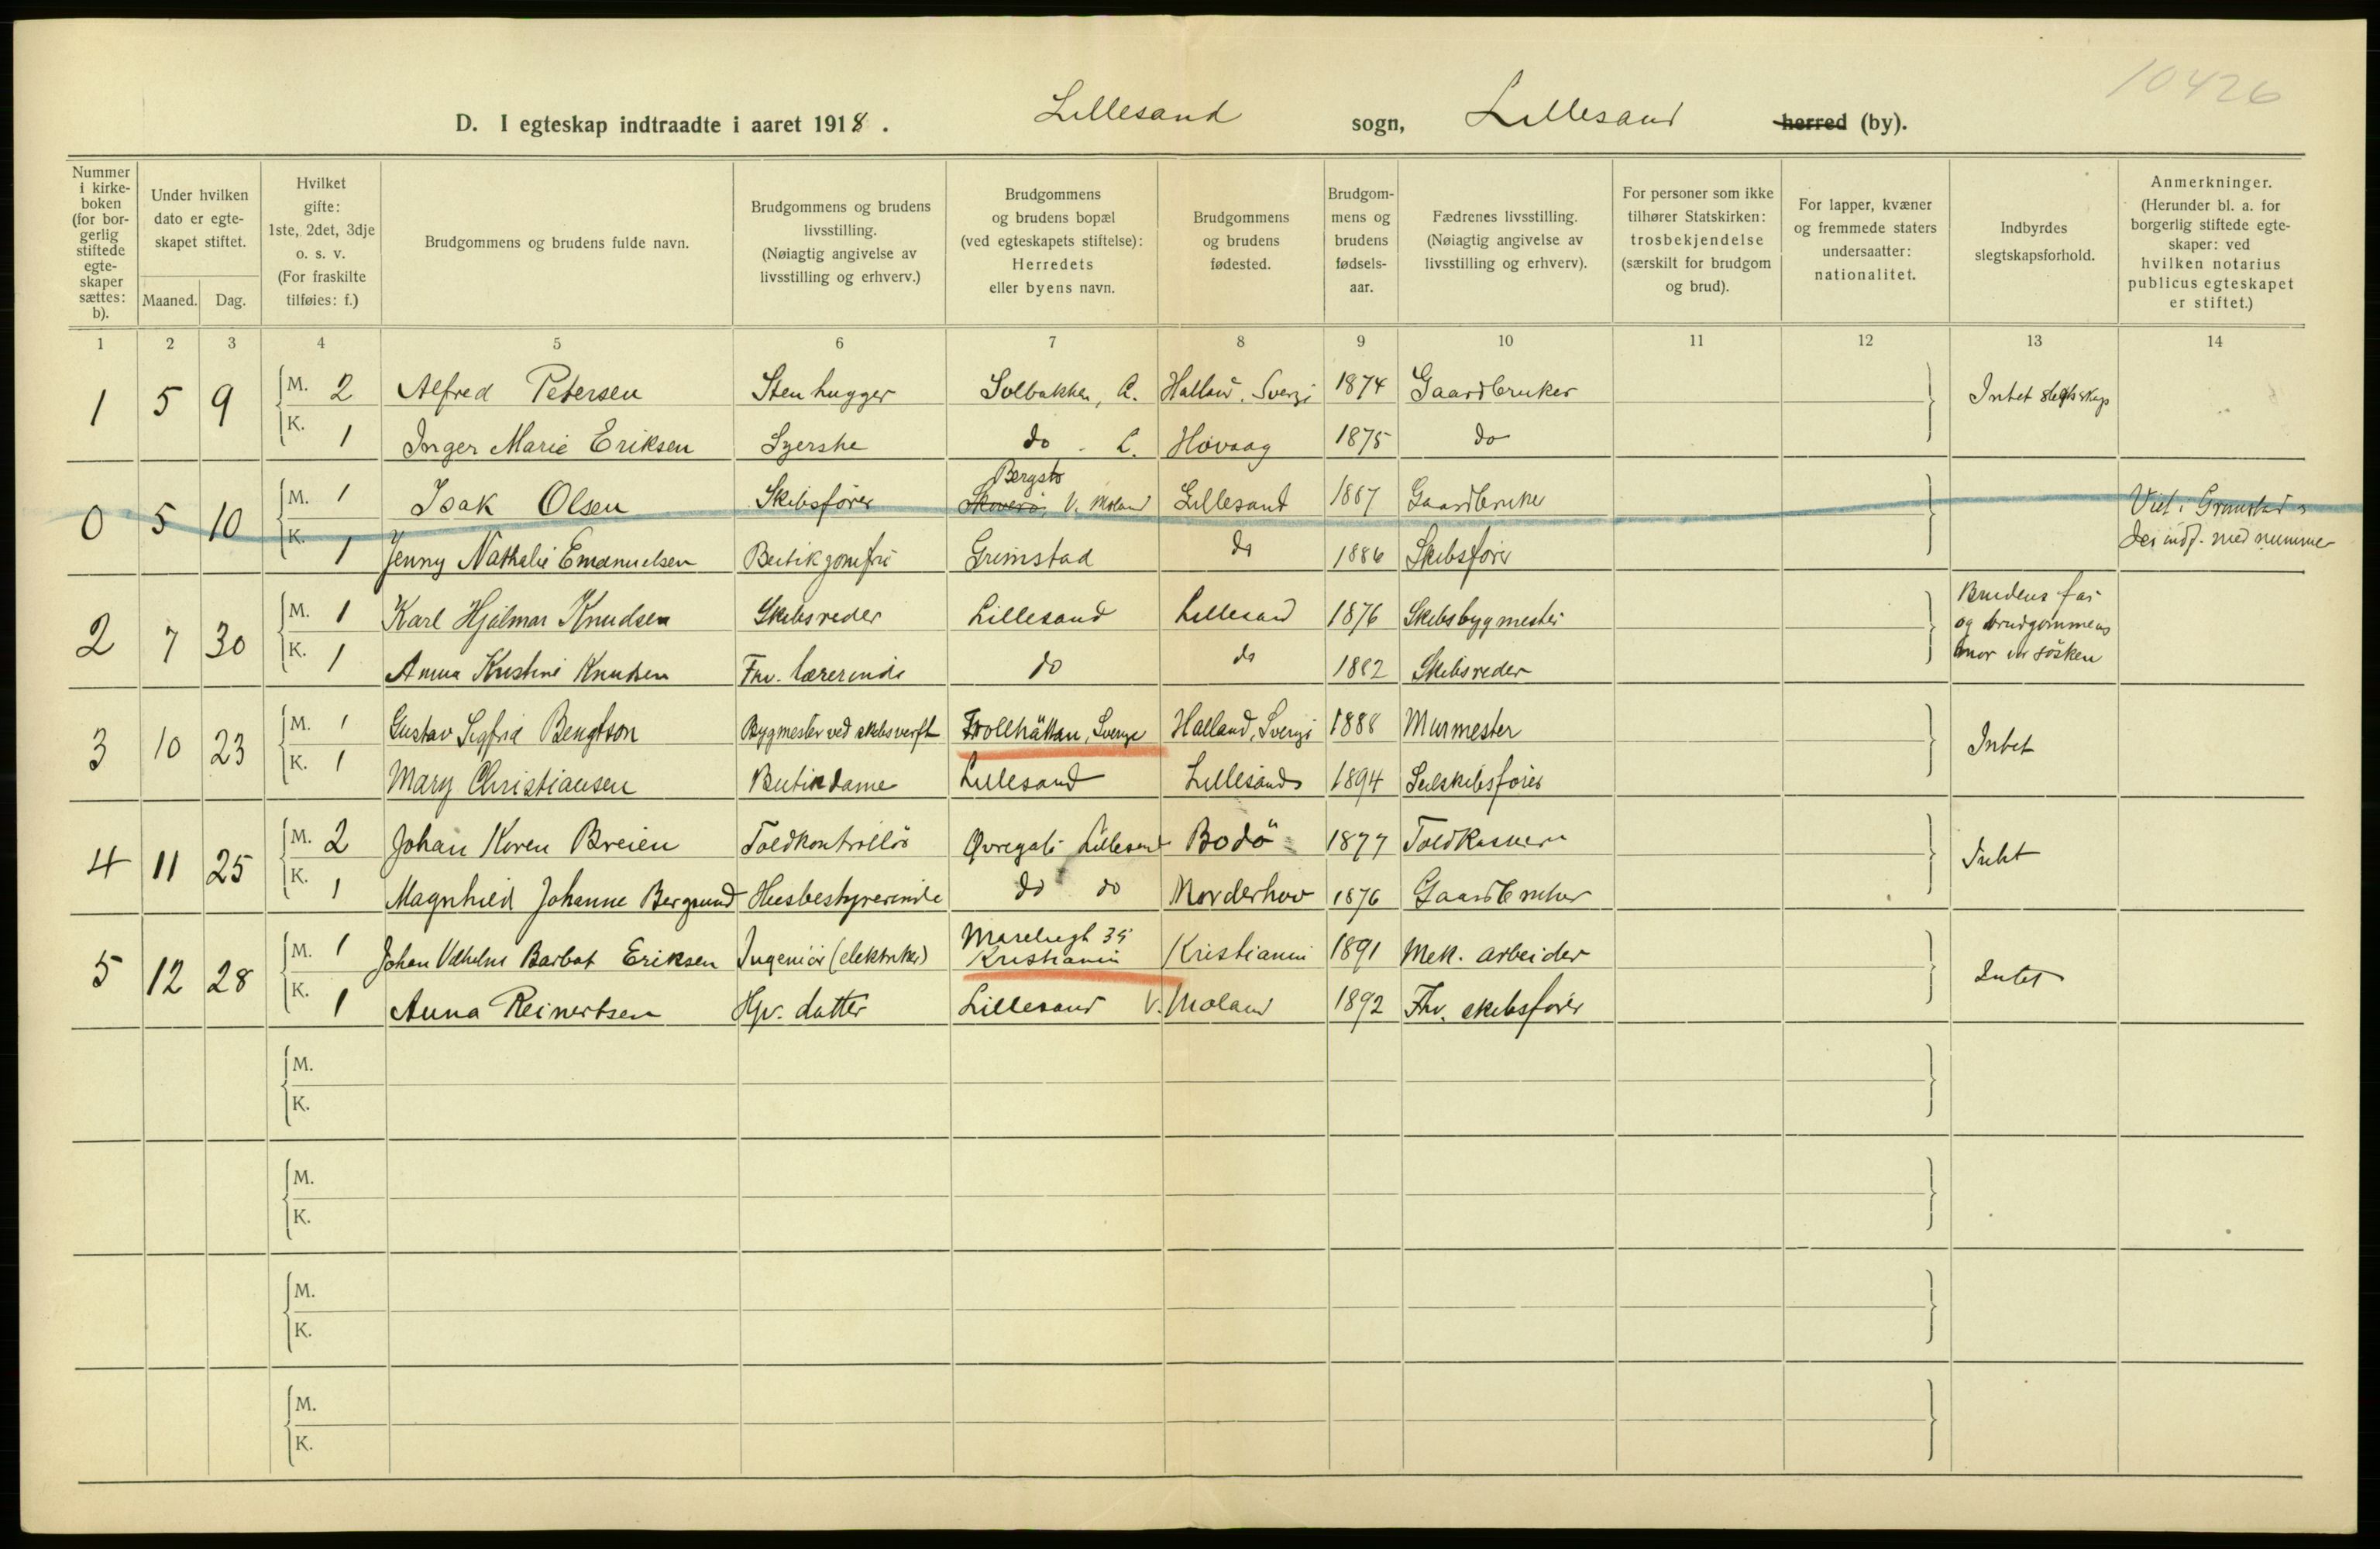 10426
D. I egteskap indtraadte i aaret 1918. Lillesand sogn, Lillesand herred (by).
Nummer i kirkeboken (for borgerlig stiftede egteskaper sættes: b).
Under hvilken dato er egteskapet stiftet.
Maaned. Dag.
Hvilket gifte: 1ste, 2det, 3dje o. s. v. (For fraskilte tilføies: f.)
Brudgommens og brudens fulde navn.
Brudgommens og brudens livsstilling. (Nøiagtig angivelse av livsstilling og erhverv.)
Brudgommens og brudens bopæl (ved egteskapets stiftelse): Herredets eller byens navn.
Brudgommens og brudens fødested.
Brudgommens og brudens fødselsaar.
Fædrenes livsstilling. (Nøiagtig angivelse av livsstilling og erhverv).
For personer som ikke tilhører Statskirken: trosbekjendelse (særskilt for brudgom og brud).
For lapper, kvæner og fremmede staters undersaatter: nationalitet.
Indbyrdes slegtskapsforhold.
Anmerkninger. (Herunder bl. a. for borgerlig stiftede egteskaper: ved hvilken notarius publicus egteskapet er stiftet.)
1 2 3 4 5 6 7 8 9 10 11 12 13 14
1 5 9 M. 2 Alfred Petersen Stenhugger Solbakken, L. Halland, Sverige 1874 Gaardbruker Intet slegtskap
K. 1 Inger Marie Eriksen Syerske do - L. Høvaag 1875 do
0 5 10 M. 1 Isak Olsen Skibsfører Bergstø V. Moland Lillesand 1887 Gaardbruker Viet i Grimstad &
K. 1 Jenny Nathalie Emanuelsen Butikjomfru Grimstad do 1886 Skibsfører der indf. med nummer
2 7 30 M. 1 Karl Hjalmar Knudsen Skibsreder Lillesand Lillesand 1876 Skibsbygmester Brudens far og brudgommens mor er søsken
K. 1 Anna Kristine Knudsen Fhv. lærerinde do do 1882 Skibsreder
3 10 23 M. 1 Gustav Sigfrid Bengtson Bygmester ved skibsverft Trollhättan, Sverige Halland, Sverige 1888 Murmester Intet
K. 1 Mary Christiansen Butikdame Lillesand Lillesand 1894 Seilskibsfører
4 11 25 M. 2 Johan Koren Breien Toldkontrollør Øvregate Lillesand Bodö 1877 Toldkasserer Intet
K. 1 Magnhild Johanne Bergsund Husbestyrerinde do do Norderhov 1876 Gaardbruker
5 12 28 M. 1 Johan Vilhelm Barbat Eriksen Ingeniør (elektriker) 35 Kristiania Kristiania 1891 Mek. arbeider Intet
K. 1 Anna Reinertsen Hjv. datter Lillesand V. Moland 1892 Fhv. skibsfører
M.
K.
M.
K.
M.
K.
M.
K.